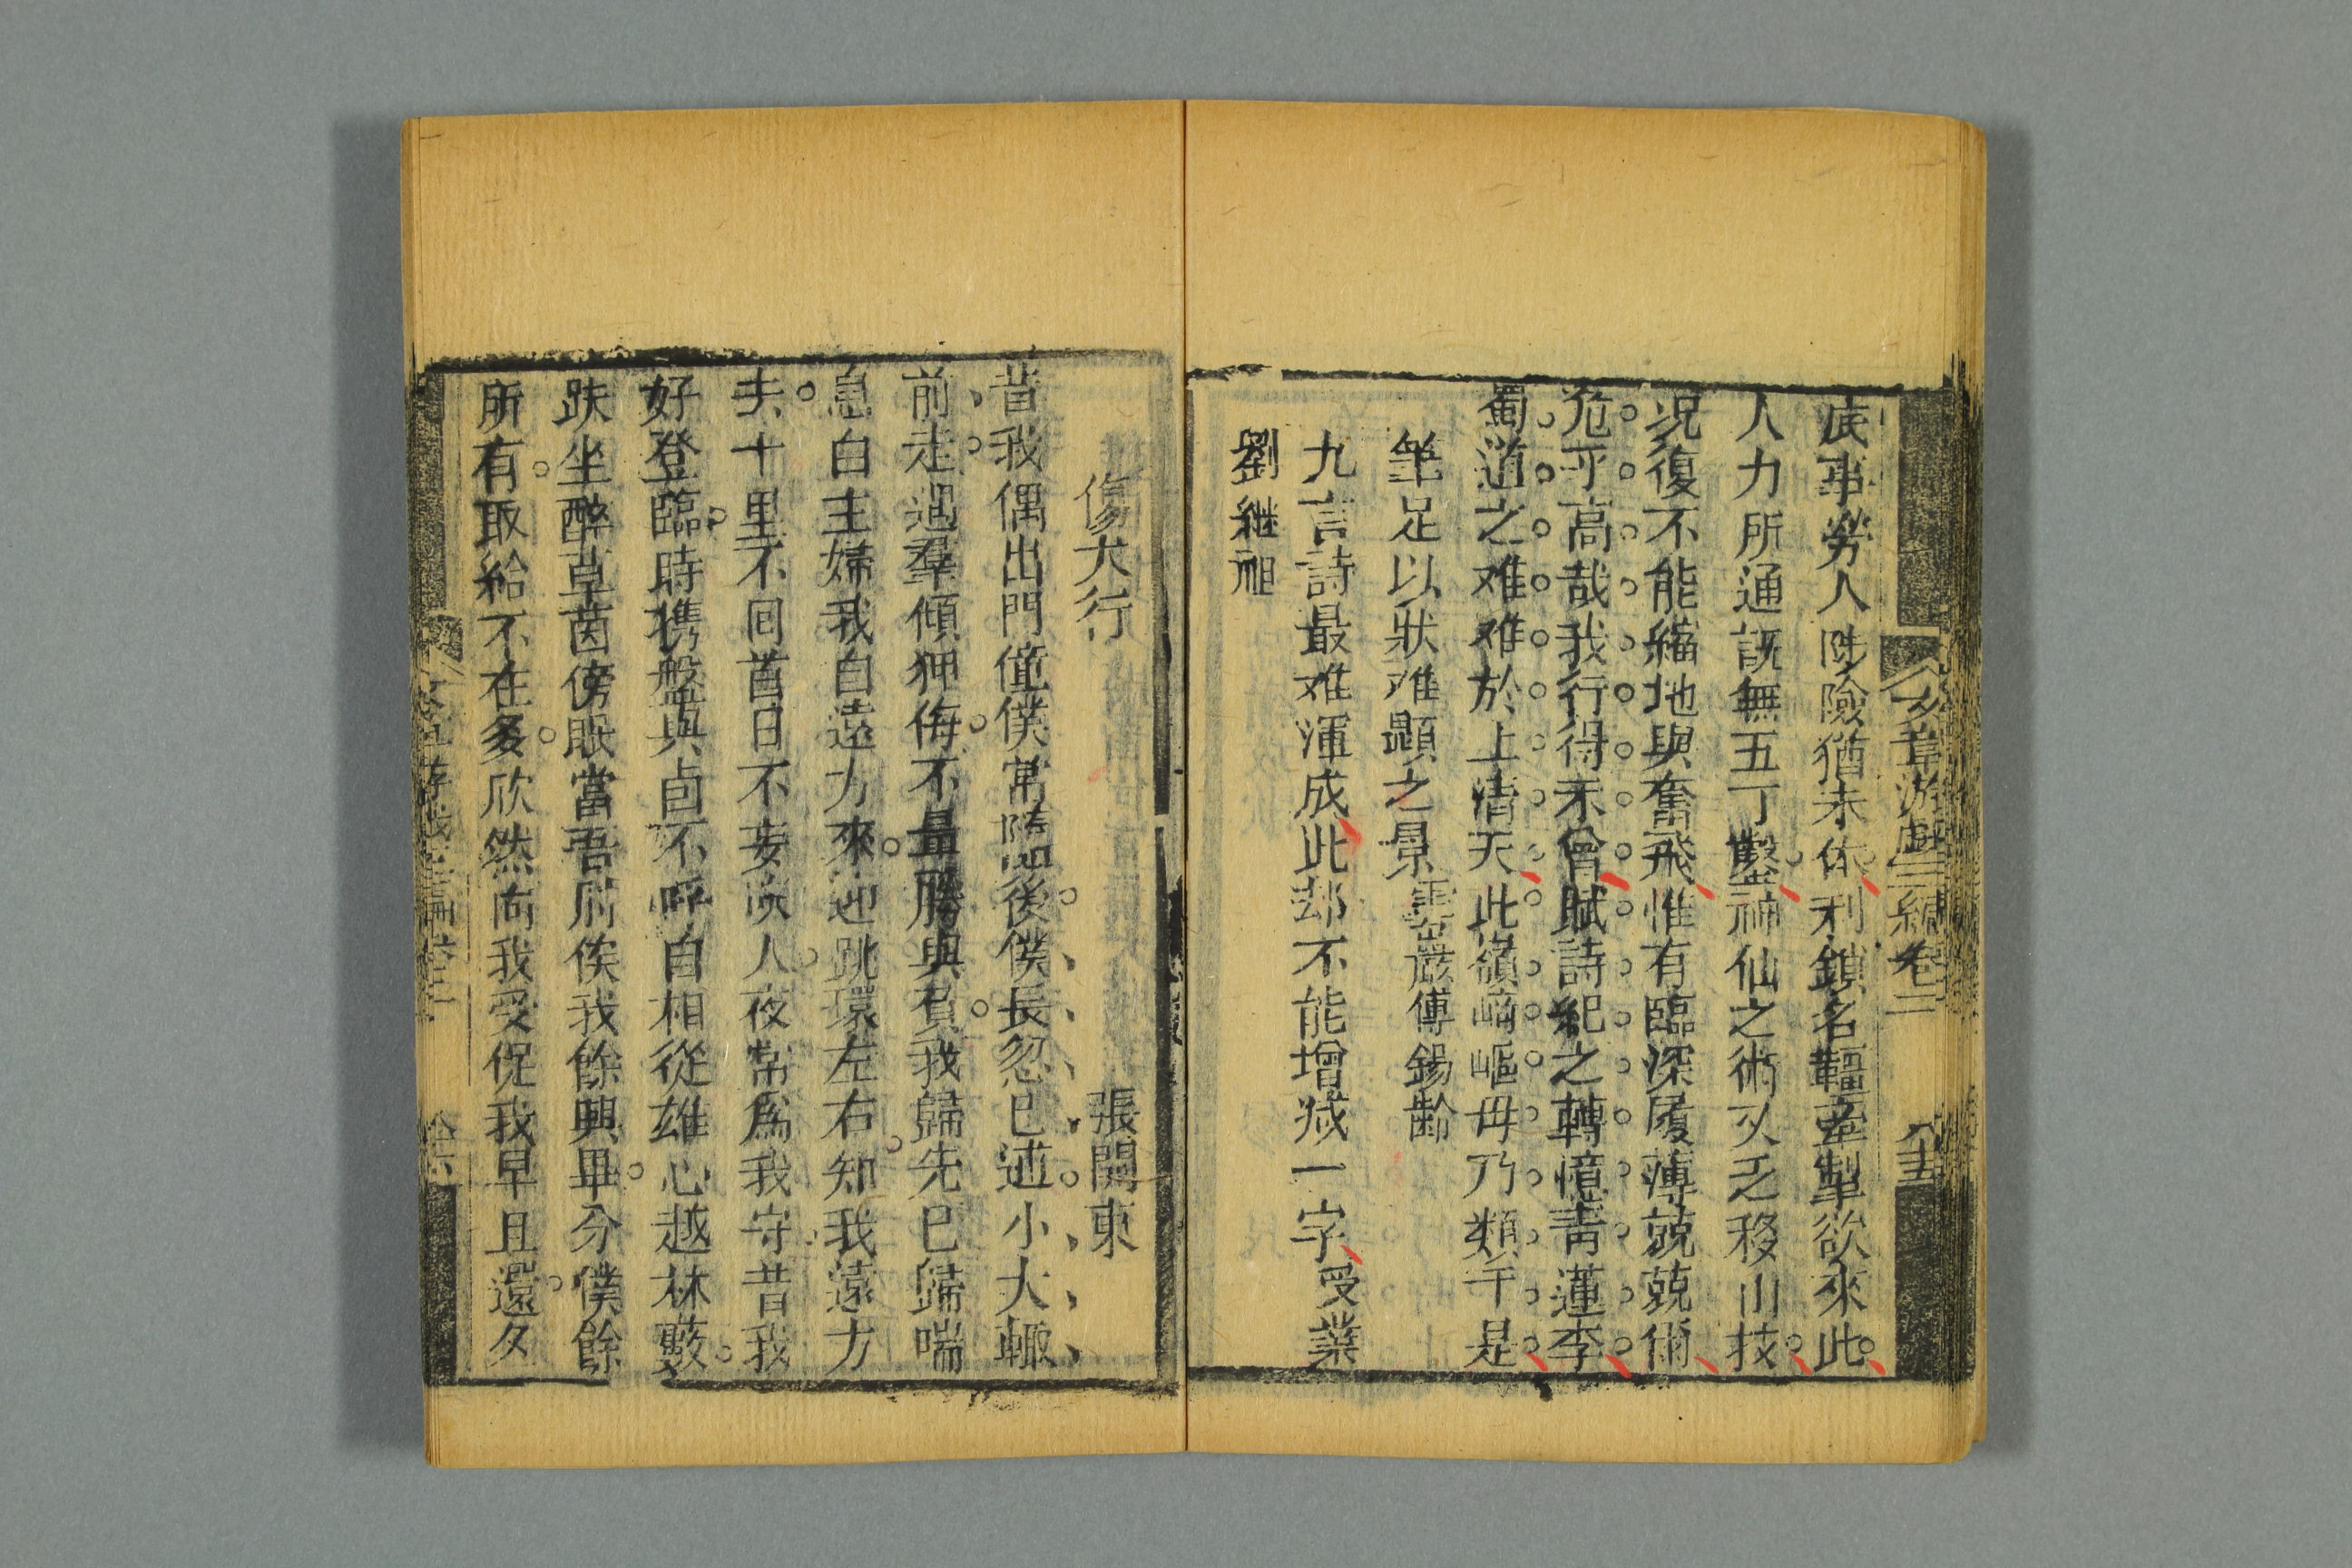 文章游戲三編卷二
十五
底事勞人陟險猶未休利鎖名韁牽掣欲來此
人力所通旣無五丁鑿神仙之術又乏移山技
況復不能縮地與奮飛惟有臨深履薄兢兢爾
危乎高哉我行得未曾賦詩紀之轉憶青蓮李
蜀道之难难於上清天此嶺崎嶇毋乃類乎是
筆足以狀难顯之景雲巖傅錫齡
九言詩最难渾成此却不能增減一字受業
劉継祖
傷犬行
張閬東
昔我偶出門僮僕常隨後僕長忽已逝小大輙
前走遇羣傾狎侮不量勝與負我歸先已歸喘
急白主婦我自遠方來迎跳環左右知我遠方
去十里不回首日不妄吠人夜常爲我守昔我
好登臨時携盤與卣不呼自相從雄心越林藪
趺坐醉草茵傍眠當吾肘俟我餘興畢分僕餘
所有取給不在多欣然向我受促我早且還夕